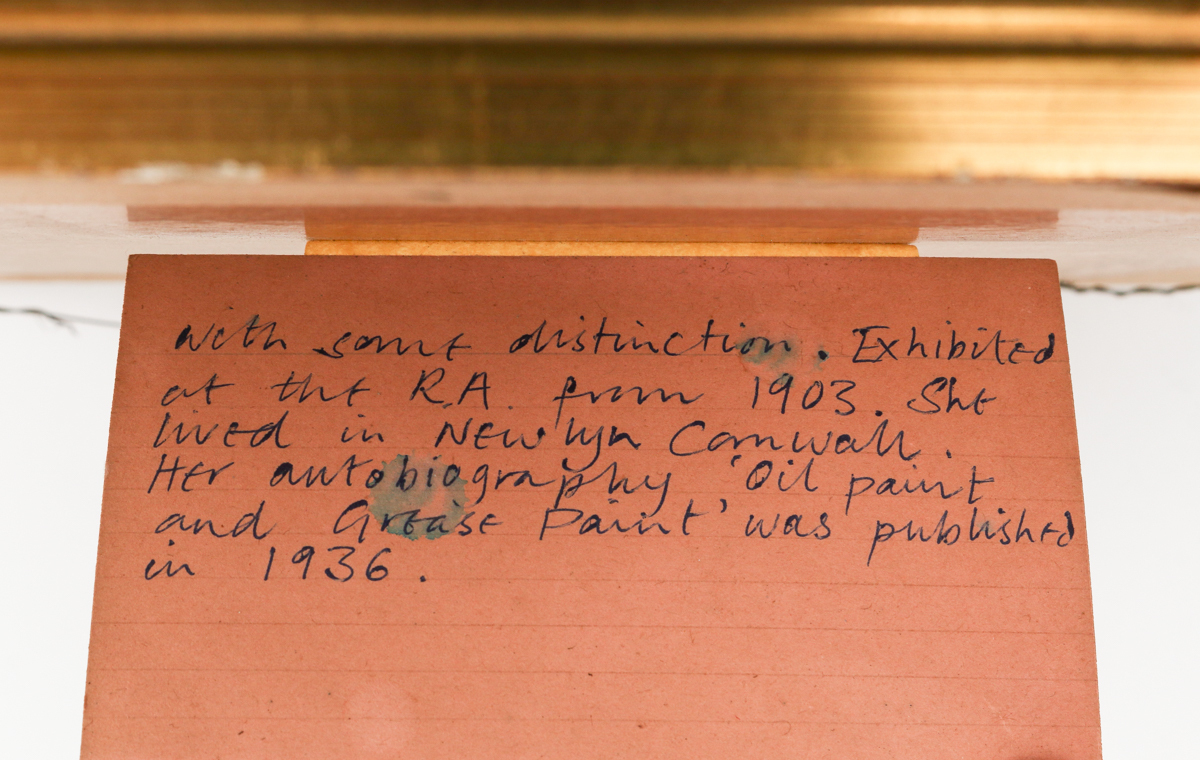 with some distinction. Exhibited
at the R.A. from 1903. She
lived in Newlyn Cornwall.
Her autobiography 'Oil paint
and Grease Paint' was published
in 1936.